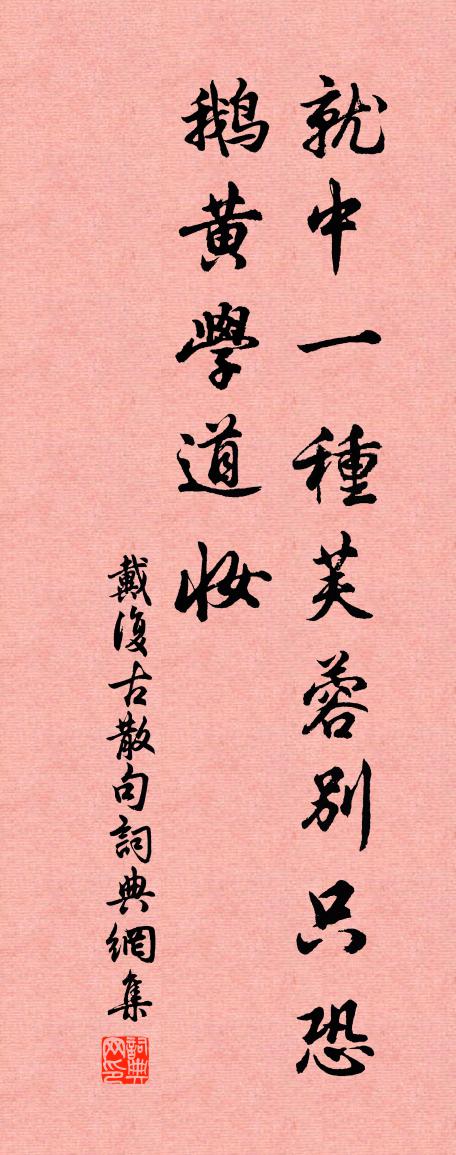 就中一種芙蓉別只恐
鵝黃學道妝
戴復古散句詞典網集
詞典网印